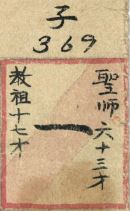 子
369
聖師六十三才
一
教祖十七才